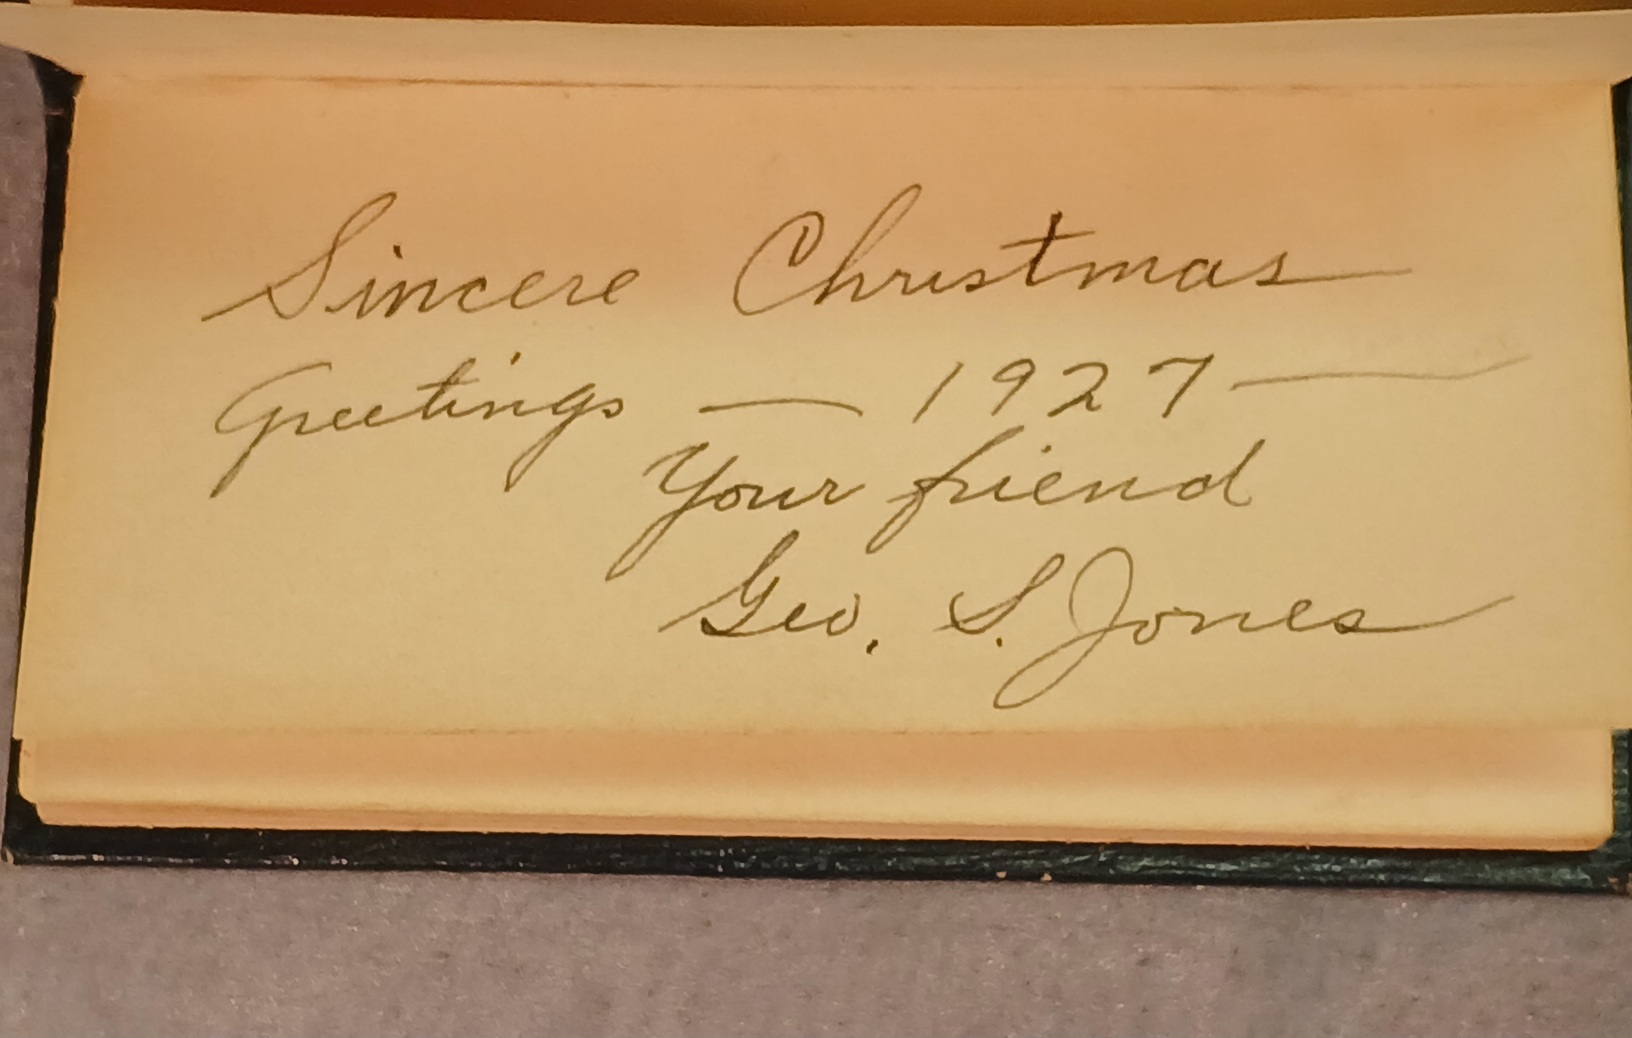 Sincere Christmas
Greetings — 1927 —
Your friend
Geo. S. Jones